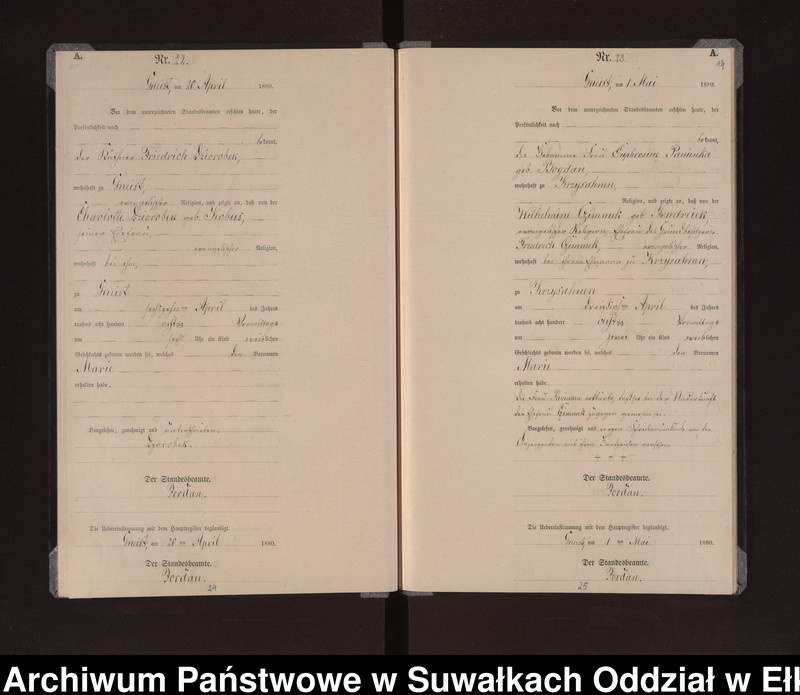 A.
Nr. 22.
Gneist, am 20 April 1880.
Vor dem unterzeichneten Standesbeamten erschien heute, der
Persönlichkeit nach
bekannt,
der Friedrich Dzorobek,
wohnhaft zu Gneist,
evangelischer Religion, und zeigte an, daß von der
Charlotte Dzorobek geb. Kobus,
seiner Ehefrau,
evangelischer Religion,
wohnhaft bei ihm,
zu Gneist
am April des Jahres
tausend acht hundert achtzig Vormittags
um Uhr ein Kind weiblichen
Geschlechts geboren worden sei, welches den Vornamen
Marie
erhalten habe.
Vorgelesen, genehmigt und unterschrieben.
Dzorobek.
Der Standesbeamte.
Jordan.
Die Uebereinstimmung mit dem Hauptregister beglaubigt.
Gneist, am 20 ten April 1880.
Der Standesbeamte.
Jordan.
24
A.
Nr. 23.
Gneist, am 1 Mai 1880.
Vor dem unterzeichneten Standesbeamten erschien heute, der
Persönlichkeit nach
bekannt,
die Hebamme Frau Euphrosine Panienka
geb. Bogdan,
wohnhaft zu Krzysahnen,
Religion, und zeigte an, daß von der
Wilhelmine Czimmek geb.
evangelischer Religion, Ehefrau des Grundbesitzers
Friedrich Czimmek, evangelischer Religion,
wohnhaft bei ihrem Ehemann zu Krzysahnen,
zu Krzysahnen
am April des Jahres
tausend acht hundert achtzig Vormittags
um Uhr ein Kind weiblichen
Geschlechts geboren worden sei, welches den Vornamen
Marie
erhalten habe.
Die Frau Panienka erklärte, daß sie bei der Niederkunft
der Ehefrau Czimmek zugegen gewesen sei.
Vorgelesen, genehmigt und wegen von der
+ + +
Der Standesbeamte.
Jordan.
Die Uebereinstimmung mit dem Hauptregister beglaubigt.
Gneist, am 1 ten Mai 1880.
Der Standesbeamte.
Jordan.
25
Archiwum Państwowe w Suwałkach Oddział w Eł